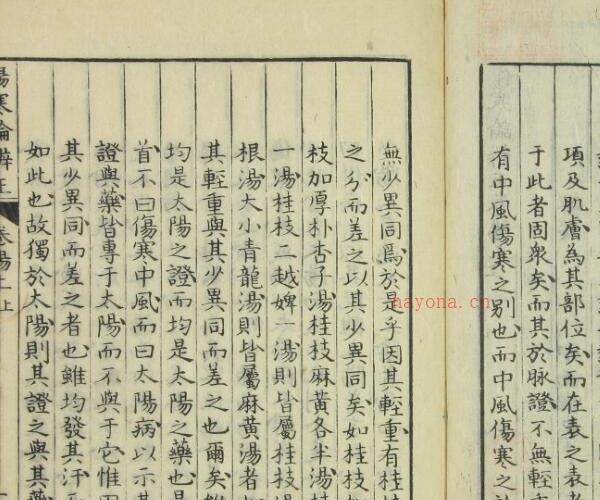 項及肌膚為其部位矣而在表之表者
于此者固衆矣而其於脉證不無輕
有中風傷寒之別也而中風傷寒之
無少異同爲於是乎因其輕重有桂枝
之分而差之以其少異同矣如桂枝
枝加厚朴杏子湯桂枝麻黃各半湯桂
一湯桂枝二越婢一湯則皆屬桂枝湯
根湯大小青龍湯則皆屬麻黃湯者
其輕重與其少異同而差之也爾矣
均是太陽之證而均是太陽之藥也是
首不曰傷寒中風而曰太陽病以示其
證與藥皆專于太陽而不與于它惟因
其少異同而差之者也雖均發其汗
如此也故獨於太陽則其證之與其藥
傷寒論辨正
卷陽上上
nayona.cn